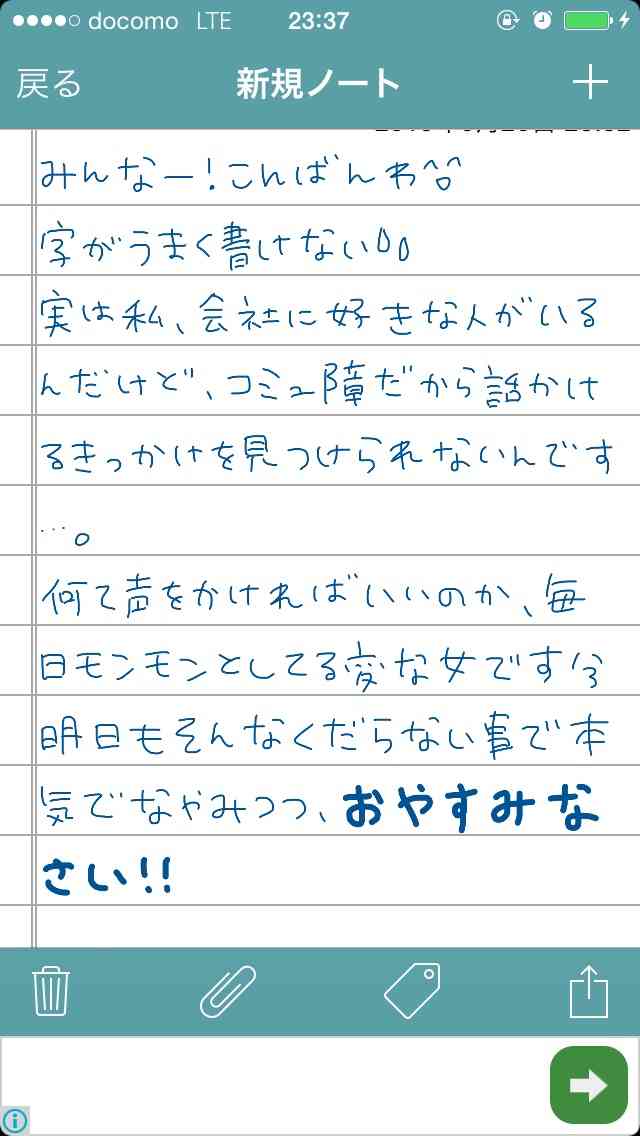 docomo LTE 23:37
戻る 新規ノート
みんなー!こんばんわ^o^
字がうまく書けない
実は私、会社に好きな人がいる
んだけど、コミュ障だから話かけ
るきっかけを見つけられないんです
…。
何て声をかければいいのか、毎
日モンモンとしてる変な女です
明日もそんなくだらない事で本
気でなやみつつ、おやすみな
さい!!